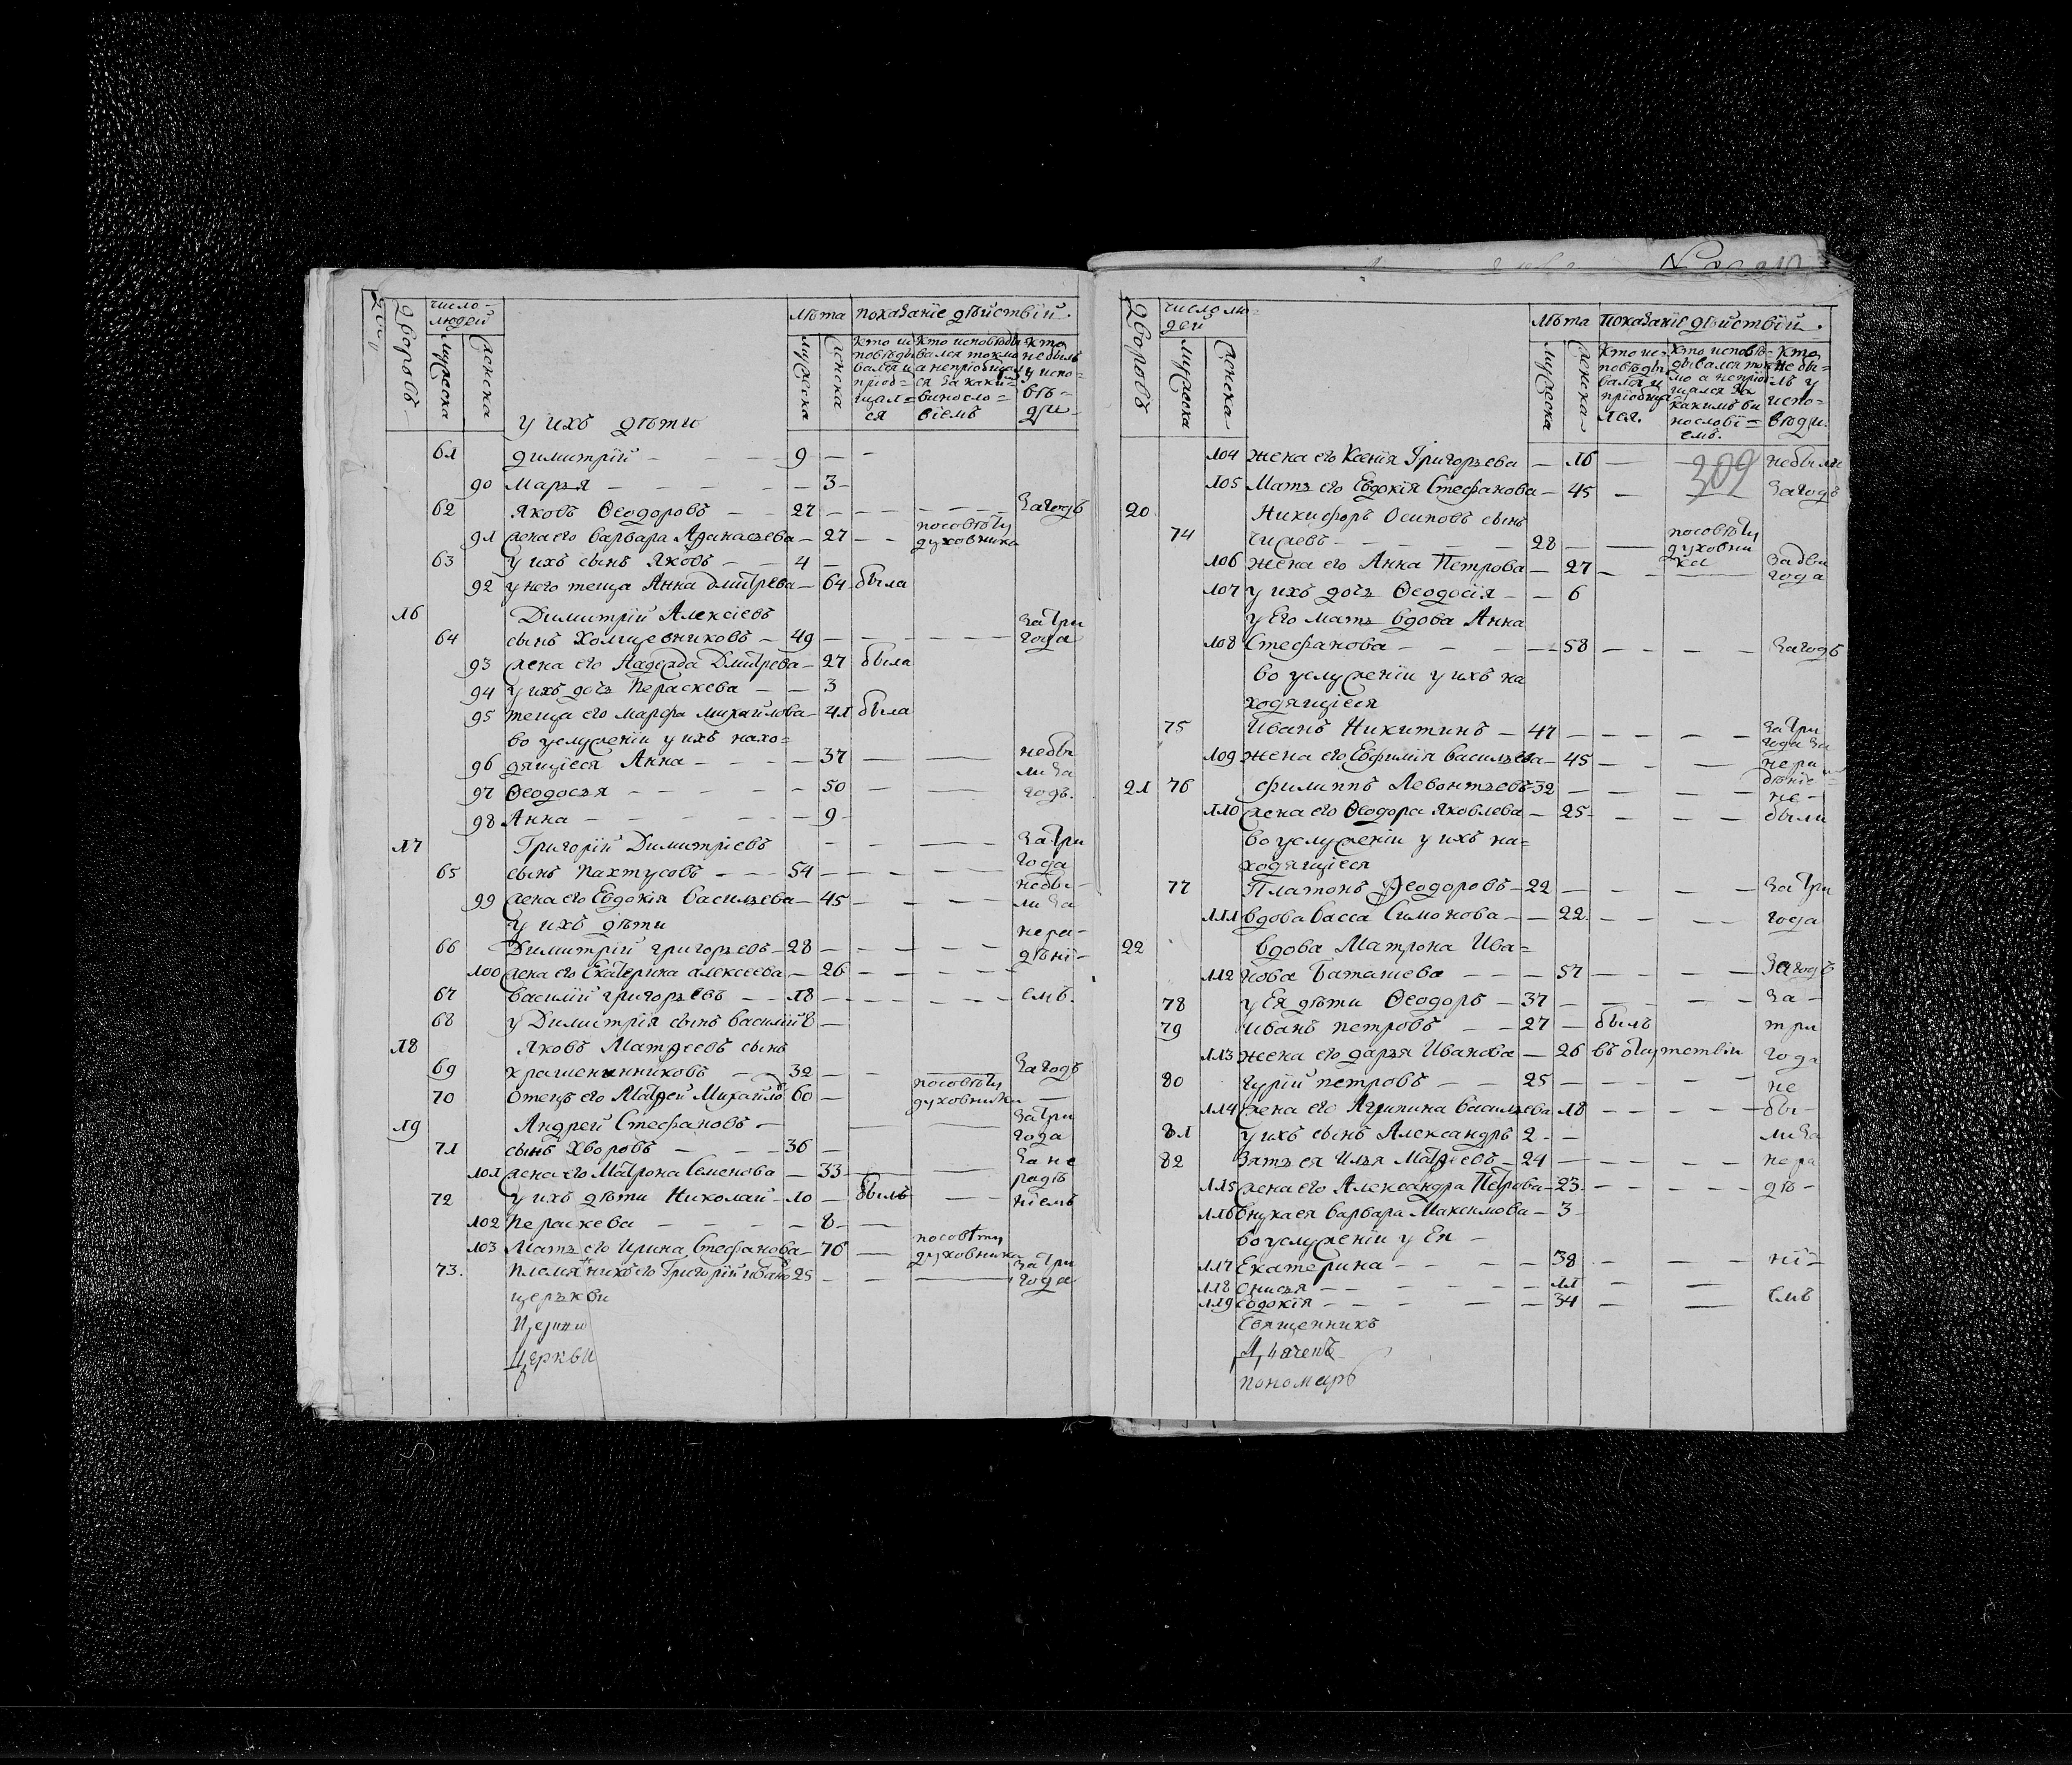 число людей
лѣта показанїе дѣйствїй.
дворовъ мужеска женска мужеска женска
Кто исповѣдывался и приобщался
Кто исповѣдывался токмо а неприобщался за какимъ винословіемъ
Кто небылъ у исповѣди
у ихъ дѣти
61 димитрїй 9
90 Марья 3
62 Яковъ Ѳеодоровъ 27 загодъ
91 жена его варвара Афанасьева 27 посовѣту духовника
63 у ихъ сынъ Яковъ 4
92 у него теща Анна дмитрева 64 была
16 Димитрїй Алексіевъ
64 сынъ Холщевниковъ 49 затри года
93 жена его Надежда Дмитрева 27 была
94 у ихъ дочь Параскева 3
95 теща его марфа михайлова 41 была
во услуженїи у ихъ нахо=
96 дящіеся Анна 37 небы
97 Ѳеодосья 50 ли за годъ.
98 Анна 9
17 Григорїй Димитріевъ затри
65 сынъ Пахтусовъ 54 года
99 жена его Евдокїя васильева 45 небы- ли за
у ихъ дѣти нера-
66 Димитрїй григорьевъ 28 дѣнї-
100 жена его Екатерина алексеева 26
67 василїй григорьевъ 18 емъ.
68 у Димитрїя сынъ василїй 8
18 Яковъ Матфеевъ сынъ
69 крашенинниковъ 32 загодъ
70 Отецъ его Матфей Михайло 60 посовѣту духовника
19 Андрей Стефановъ затри
71 сынъ Хворовъ 36 года
101 жена его Матрона Семенова 33 за не радѣ
72 у ихъ дѣти Николай 10 былъ нїемъ
102 Параскева 8
103 Мать его Ирина Стефанова 76 посовѣту духовника
73. племянникъ его Григорїй ивано 25 затри года
церькви
Церкви
число людей
лѣта Показанїе дѣйствїй.
дворовъ мужеска женска мужеска женска
Кто исповѣдывался и приобщался.
Кто исповѣдывался токмо а неприобщался за какимъ винословїемъ.
Кто небылъ у исповѣди.
309
104 жена его Ксенїя Григорьева 16 небыли
105 Мать его Евдокїя Стефанова 45 загодъ
20 Никифоръ Осиповъ сынъ
74 28 посовѣту духовника
106 жена его Анна Петрова 27 задва года
107 у ихъ дочь Ѳеодосїя 6
у Его мать вдова Анна
108 Стефанова 58 загодъ
во услуженїи у ихъ на
ходящїеся
75 Иванъ Никитинъ 47 затри
109 жена его Евфимїя васильева 45 года за нера
21 76 филиппъ Левонтьевъ 32 дѣнїе не-
110 жена его Ѳеодора Яковлева 25 были
во услуженїи у ихъ на=
ходящїеся
77 Платонъ Ѳеодоровъ 22 затри
111 вдова васса Симонова 22 года
22 вдова Матрона Ива=
112 нова Баташева 57 загодъ
78 у Ея дѣти Ѳеодоръ 37 за
79 иванъ петровъ 27 былъ три
113 жена его дарья Иванова 26 въ отцутствїи года
80 гурїй петровъ 25 не
114 жена его Агрипина васильева 18 бы-
81 у ихъ сынъ Александръ 2 ли за
82 Зять ея Илья Матфеевъ 24 нера
115 жена его Александра Петрова 23 дѣ-
116 внука ея варвара Максимова 3
во услуженїи у Ея
117 Екатерина 38 нї-
118 Онисья 11
119 Евдокїя 34 емъ
Священникъ
пономарь